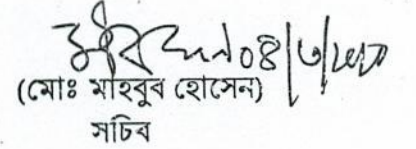 ০৪/৩/২০২০
(মোঃ মাহবুব হোসেন)
সচিব